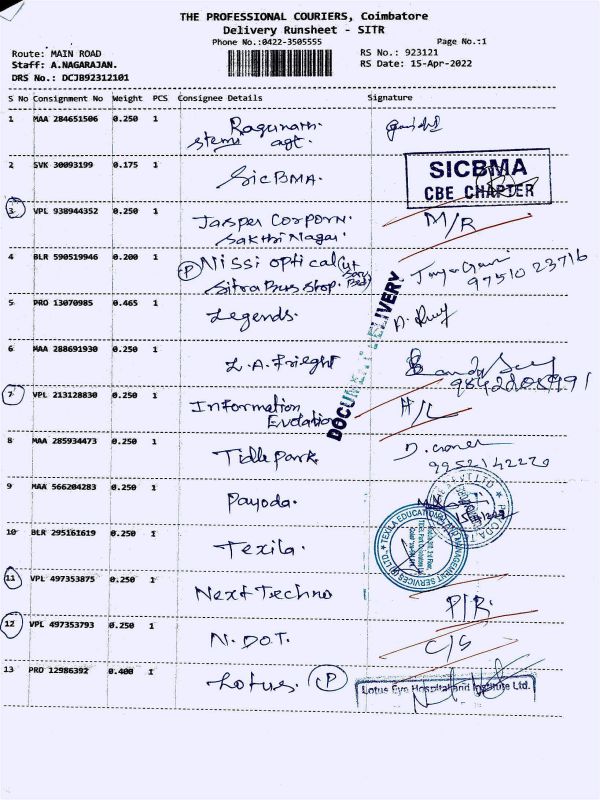 THE PROFESSIONAL COURIERS, Coimbatore
Delivery Runsheet - SITR
Phone No.:0422-3505555 Page No.:1
Route: MAIN ROAD RS No.: 923121
Staff: A.NAGARAJAN. RS Date: 15-Apr-2022
DRS No.: DCJB92312101
S No Consignment No Weight PCS Consignee Details Signature
1 MAA 284651506 0.250 1 Ragunath.
Stems agt.
2 SVK 30093199 0.175 1 SICBMA.
SICBMA
CBE CHAPTER
3 VPL 938944352 0.250 1 Jasper Corporn. M/R
Sakthi Nagar.
4 BLR 590519946 0.200 1 P Nissi optical
Sitra Bus Stop. 97510 23716
DOCUMENT DELIVERY
5 PRO 13070985 0.465 1 Legends.
6 MAA 288691930 0.250 1 L.A. Frieght
7 VPL 213128830 0.250 1 Information H/L
Evolation
8 MAA 285934473 0.250 1 Tidle Park
9952142220
9 MAA 566204283 0.250 1 Payoda.
10 BLR 295161619 0.250 1 Texila.
TEXILA EDUCATION AND MANAGEMENT SERVICES
11 VPL 497353875 0.250 1 Next Techno P/R.
12 VPL 497353793 0.250 1 N.DOT. C/S
13 PRO 12986392 0.400 1 Lotus. P
Lotus Eye Hospital and Institute Ltd.